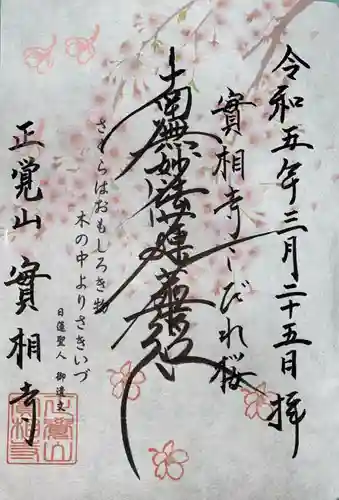 令和五年三月二十五日 拝
實相寺しだれ桜
南無妙法蓮華経
さくらはおもしろき物
木の中よりさきいづ
日蓮聖人 御遺文
正覚山 實相寺